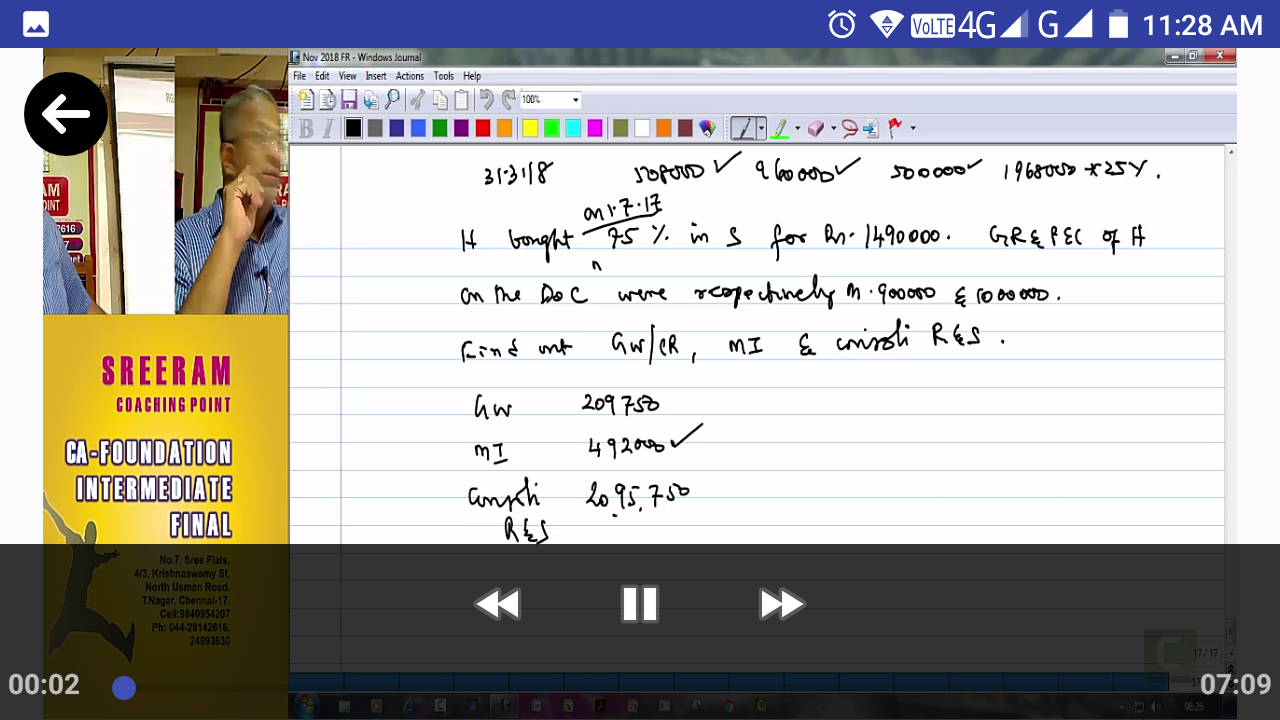 VoLTE 4G G 11:28 AM
Nov 2018 FR - Windows Journal
File Edit View Insert Actions Tools Help
100%
31.3.18 508000 ✓ 960000 ✓ 500000 ✓ 1968000 * 25%.
on 1.7.17
H bought 75% in S for Rs. 1490000. GR & P&L of H
on the DOC were respectively Rs. 900000 & 1000000.
Find out GW/CR, MI & consoli R&S.
GW 209750
MI 492000 ✓
Consoli 2095,750
R&S
SREERAM
COACHING POINT
CA-FOUNDATION
INTERMEDIATE
FINAL
No.7, Sree Flats,
4/3, Krishnaswamy St,
North Usman Road,
T.Nagar, Chennai-17.
Cell:9840954207
Ph: 044-28142616,
24893830
17 / 17
00:02 07:09
06:26